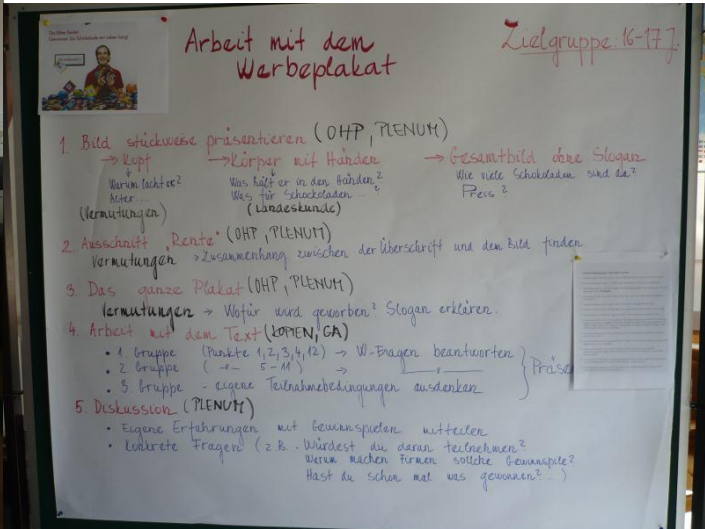 Arbeit mit dem
Werbeplakat
Zielgruppe: 16-17 J.
1. Bild stückweise präsentieren (OHP, PLENUM)
→ Kopf → Körper mit Händen → Gesamtbild ohne Slogan
Warum lacht er? Was hält er in den Händen? Wie viele Schokoladen sind da?
Alter... Was für Schockoladen...? Preis?
(Vermutungen) (Landeskunde)
2. Ausschnitt "Rente" (OHP, PLENUM)
Vermutungen → Zusammenhang zwischen der Überschrift und dem Bild finden
3. Das ganze Plakat (OHP, PLENUM)
Vermutungen → Wofür wird geworben? Slogan erklären.
4. Arbeit mit dem Text (KOPIEN, GA)
• 1. Gruppe (Punkte 1,2,3,4,12) → W-Fragen beantworten
• 2. Gruppe ( -"- 5-11 ) → -"-
• 3. Gruppe - eigene Teilnahmebedingungen ausdenken
Präse
5. Diskussion (PLENUM)
• Eigene Erfahrungen mit Gewinnspielen mitteilen
• Konkrete Fragen (z.B. - Würdest du daran teilnehmen?
Warum machen Firmen sollche Gewinnspile?
Hast du schon mal was gewonnen? ...)